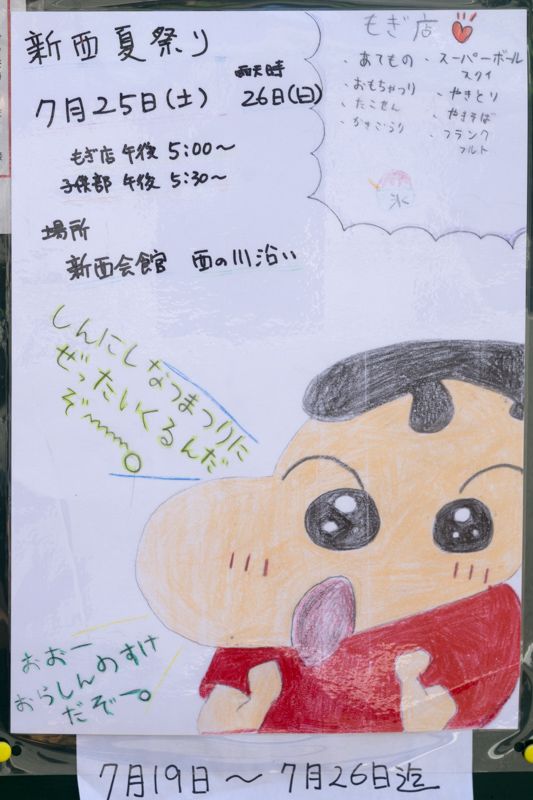 新西夏祭り
7月25日(土)
雨天時
26日(日)
もぎ店 午後 5:00〜
子供部 午後 5:30〜
場所
新西会館 西の川沿い
もぎ店
・あてもの
・おもちゃつり
・たこせん
・かきごおり
・スーパーボール
スクイ
・やきとり
・やきそば
・フランク
フルト
氷
しんにしなつまつりに
ぜったいくるんだ
ぞ〜〜〜。
おおー
おらしんのすけ
だぞー。
7月19日 〜 7月26日迄